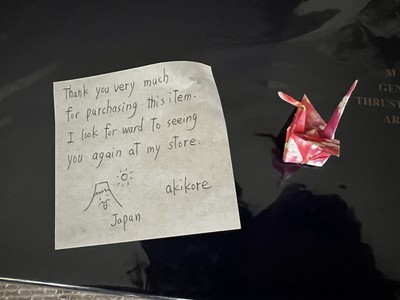 Thank you very much
for purchasing this item.
I look for ward to seeing
you again at my store.
akikore
Japan
M
GEN
THRUST
AR